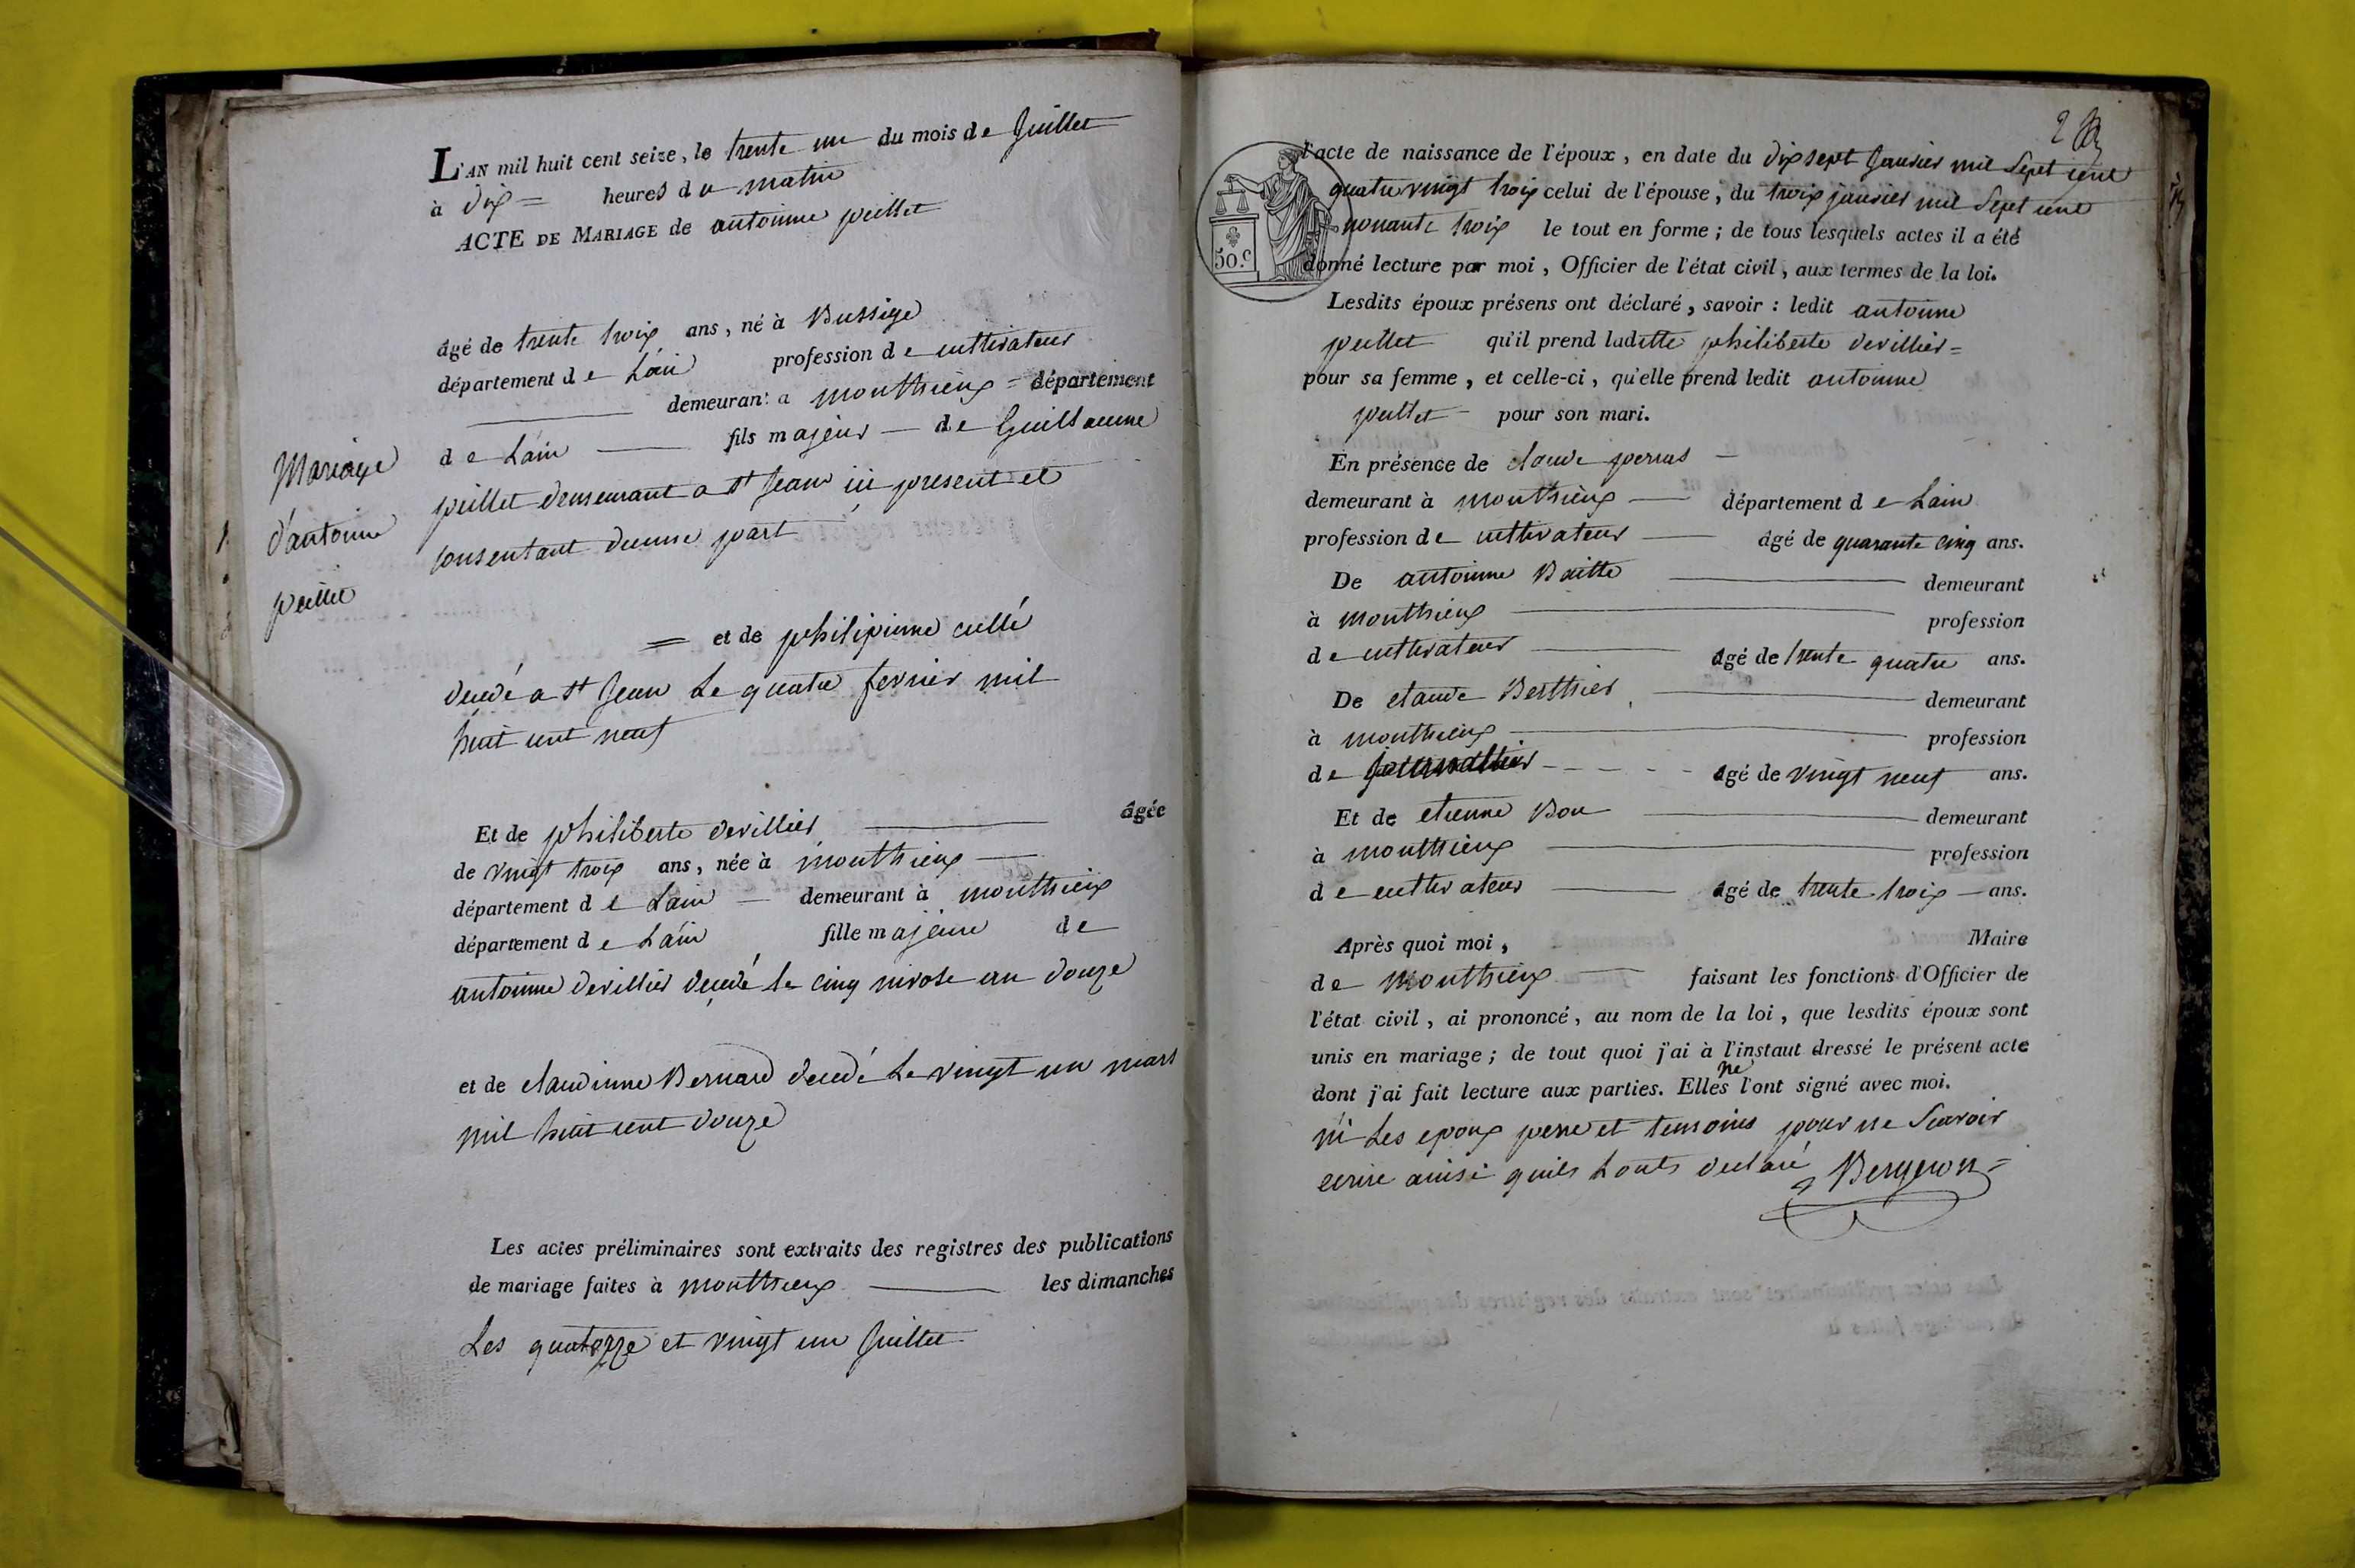 L'AN mil huit cent seize, le trente un du mois de Juillet
à dix = heures du matin
ACTE DE MARIAGE de antoinne peillet
âgé de trente troix ans, né à Bussige
département de Lain profession de cultivateur
demeurant a monthieux = département
de Lain fils majeur de Guillaume
peillet demeurant a st Jean ici present et
consentant dunne part
Mariage
d'antoinne
peillet
= et de philipinne cullé
decedé a st Jean Le quatre fevrier mil
huit cent neuf
Et de philiberte devillier âgée
de vingt troix ans, née à monthieux
département de Lain demeurant à monthieux
département de Lain fille majeure de
antoinne devillier decedé le cinq nivose an douze
et de claudinne Bernard decedé Le vingt un mars
mil huit cent douze
Les actes préliminaires sont extraits des registres des publications
de mariage faites à monthieux les dimanches
Les quatorze et vingt un Juillet
2
l'acte de naissance de l'époux, en date du dix sept Janvier mil Sept cent
quatre vingt troix celui de l'épouse, du troix janvier mil Sept cent
nonante troix le tout en forme; de tous lesquels actes il a été
50.c
donné lecture par moi, Officier de l'état civil, aux termes de la loi.
Lesdits époux présens ont déclaré, savoir: ledit antoinne
peillet qu'il prend laditte philiberte devillier =
pour sa femme, et celle-ci, qu'elle prend ledit antoinne
peillet pour son mari.
En présence de claude perras
demeurant à monthieux département de Lain
profession de cultivateur âgé de quarante cinq ans.
De antoinne Baitte demeurant
à monthieux profession
de cultivateur âgé de trente quatre ans.
De claude Berthier demeurant
à monthieux profession
de Journallier âgé de vingt neuf ans.
Et de etienne Bon demeurant
à monthieux profession
de cultivateur âgé de trente troix ans.
Après quoi moi, Maire
de monthieux faisant les fonctions d'Officier de
l'état civil, ai prononcé, au nom de la loi, que lesdits époux sont
unis en mariage; de tout quoi j'ai à l'instaut dressé le présent acte
dont j'ai fait lecture aux parties. Elles ne l'ont signé avec moi.
ni Les epoux pere et temoins pour ne Scavoir
ecrire ainsi quils Lonts declaré Bergeron =